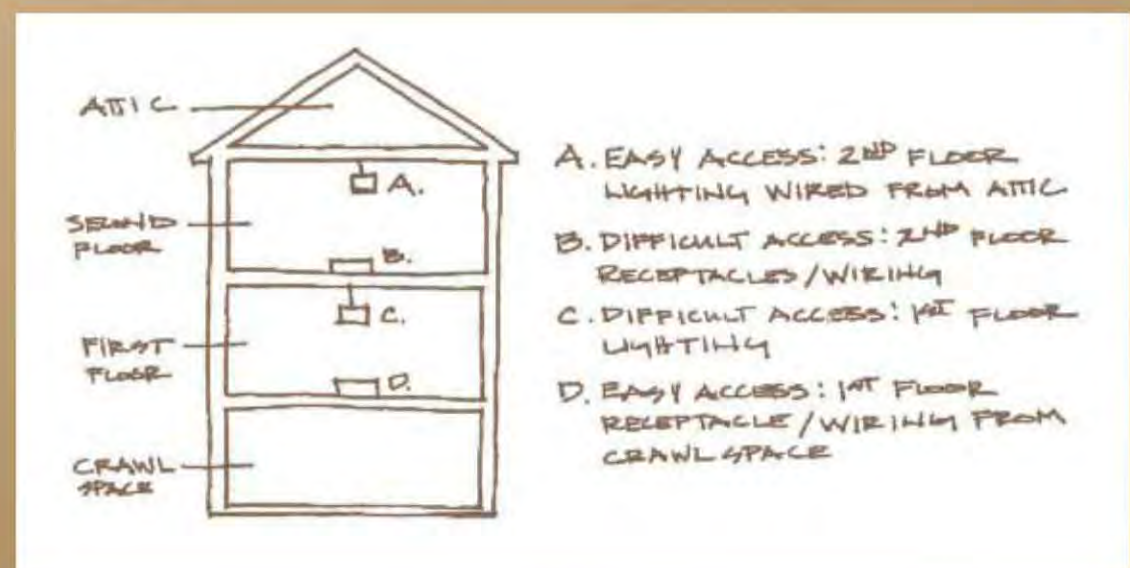 ATTIC
SECOND
FLOOR
FIRST
FLOOR
CRAWL
SPACE
A.
B.
C.
D.
A. EASY ACCESS: 2ND FLOOR
LIGHTING WIRED FROM ATTIC
B. DIFFICULT ACCESS: 2ND FLOOR
RECEPTACLES/WIRING
C. DIFFICULT ACCESS: 1ST FLOOR
LIGHTING
D. EASY ACCESS: 1ST FLOOR
RECEPTACLE/WIRING FROM
CRAWL SPACE